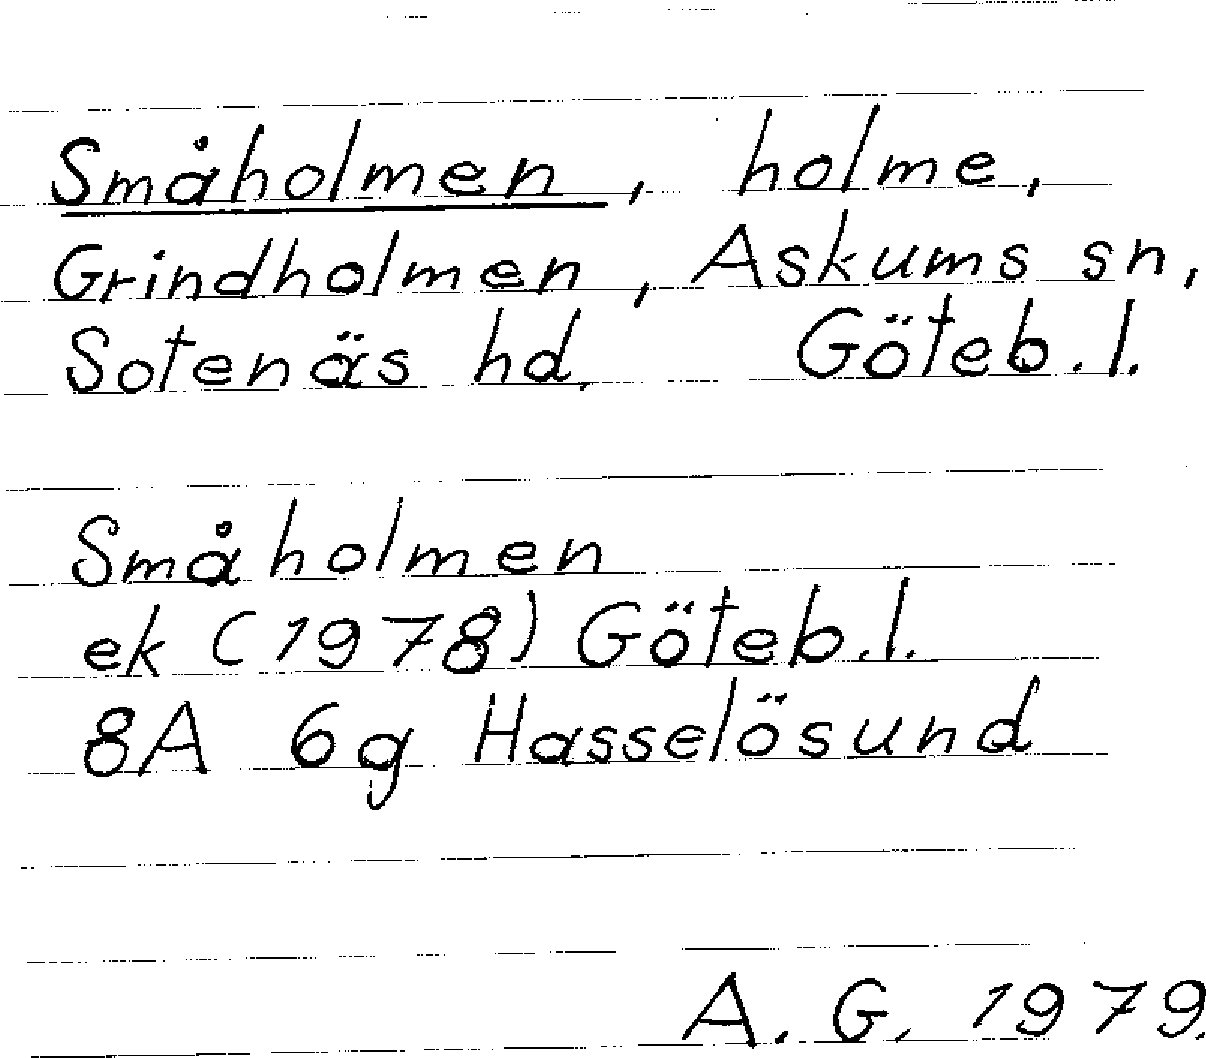 Småholmen, holme,
Grindholmen, Askums sn,
Sotenäs hd. Göteb.l.
Småholmen
ek (1978) Göteb.l.
8A 6g Hasselösund
A. G. 1979.